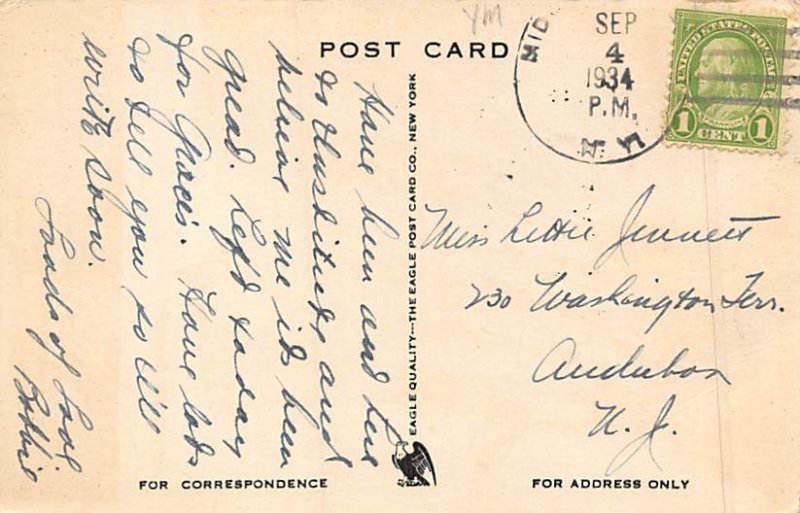 YM
POST CARD
MID
SEP
4
1934
P.M.
N.Y.
UNITED STATES POSTAGE
1 CENT 1
Have been and live
to and
believe me its been
great. Left today
for Graces. Have lots
to tell you so I'll
write soon.
Loads of Love
Bobbie
EAGLE QUALITY---THE EAGLE POST CARD CO., NEW YORK
Miss Lettie Jennett
230 Washington Terr.
Audubon
N. J.
FOR CORRESPONDENCE
FOR ADDRESS ONLY